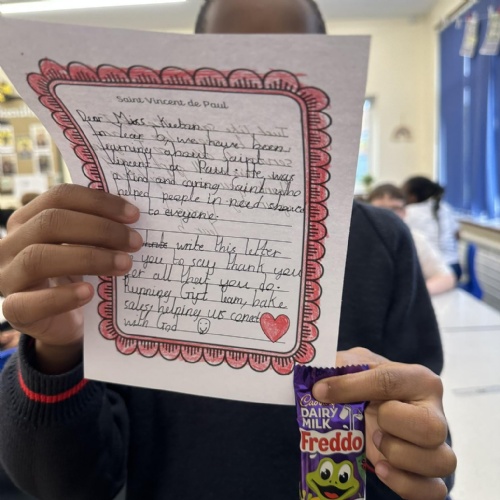 Saint Vincent de Paul
Dear Miss
In Year 5, we have been
learning about Saint
Vincent de Paul. He was
a kind and caring Saint who
helped people in need
to everyone.
write this letter
to you to say thank you
for all that you do.
Running Gift Team, bake
sales, helping us
with God
Cadbury
DAIRY
MILK
Freddo